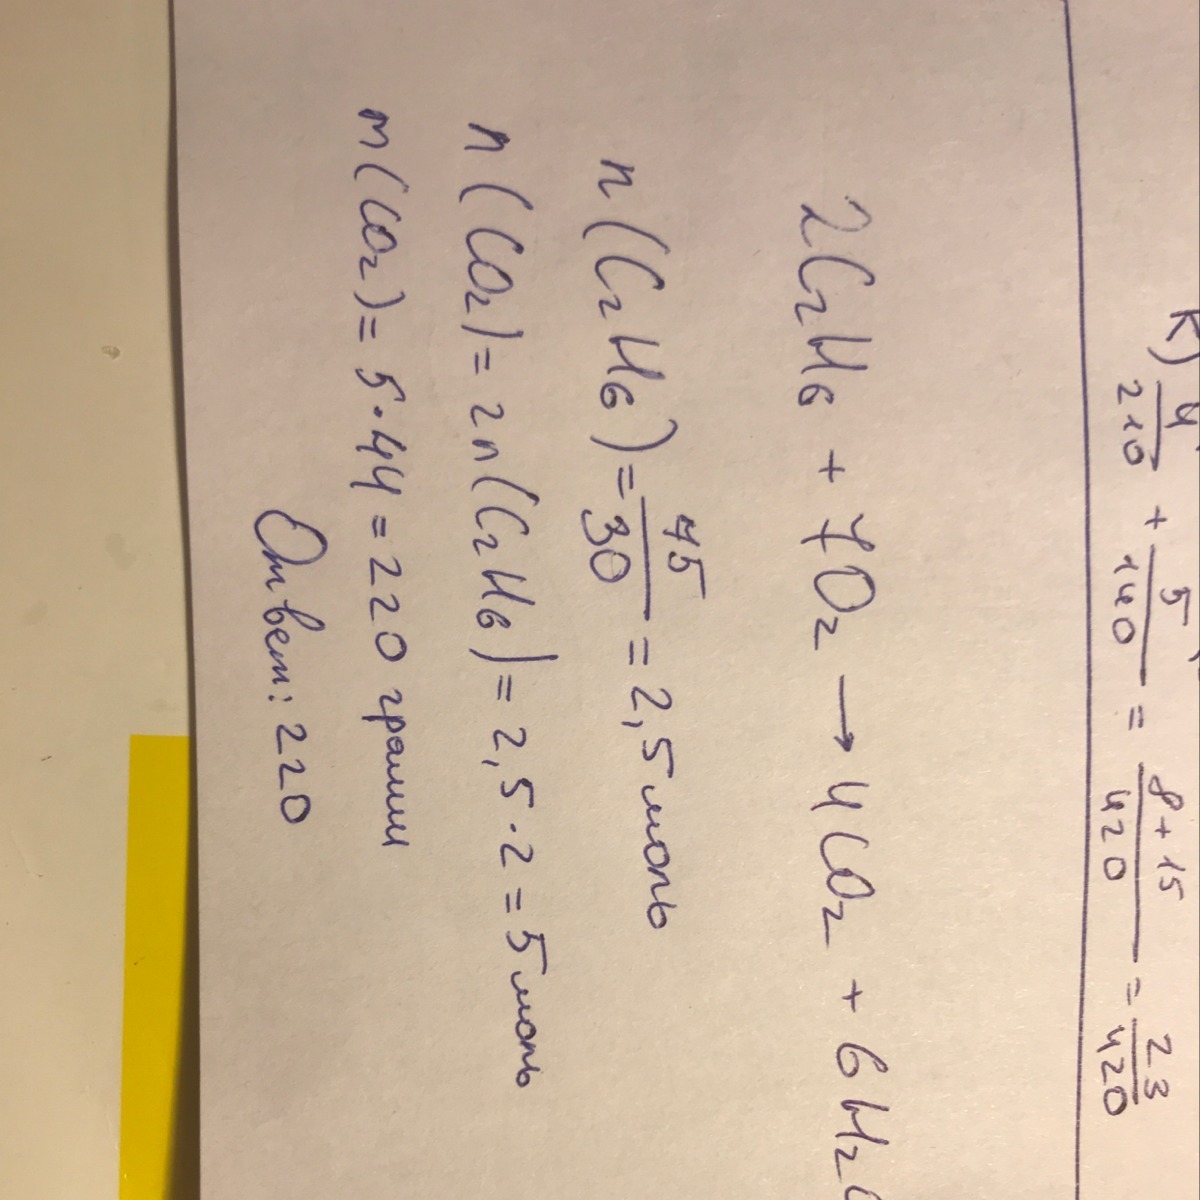 К) 4/210 + 5/140 = 8+15/420 = 23/420
2C₂H₆ + 7O₂ → 4CO₂ + 6H₂
n(C₂H₆) = 75/30 = 2,5 моль
n(CO₂) = 2n(C₂H₆) = 2,5·2 = 5 моль
m(CO₂) = 5·44 = 220 грамм
Ответ: 220